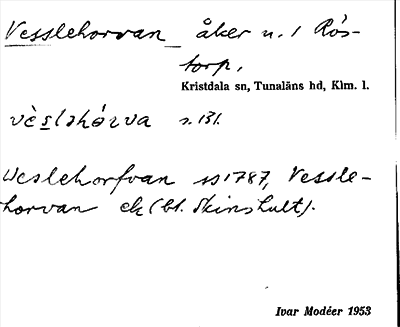 Vesslehorvan åker n. 1 Rös-
torp,
Kristdala sn, Tunaläns hd, Klm. l.
vèslshórva s. 131.
Weslehorfvan ss 1787, Vessle-
horvan ek (bl. Skinshult).
Ivar Modéer 1953